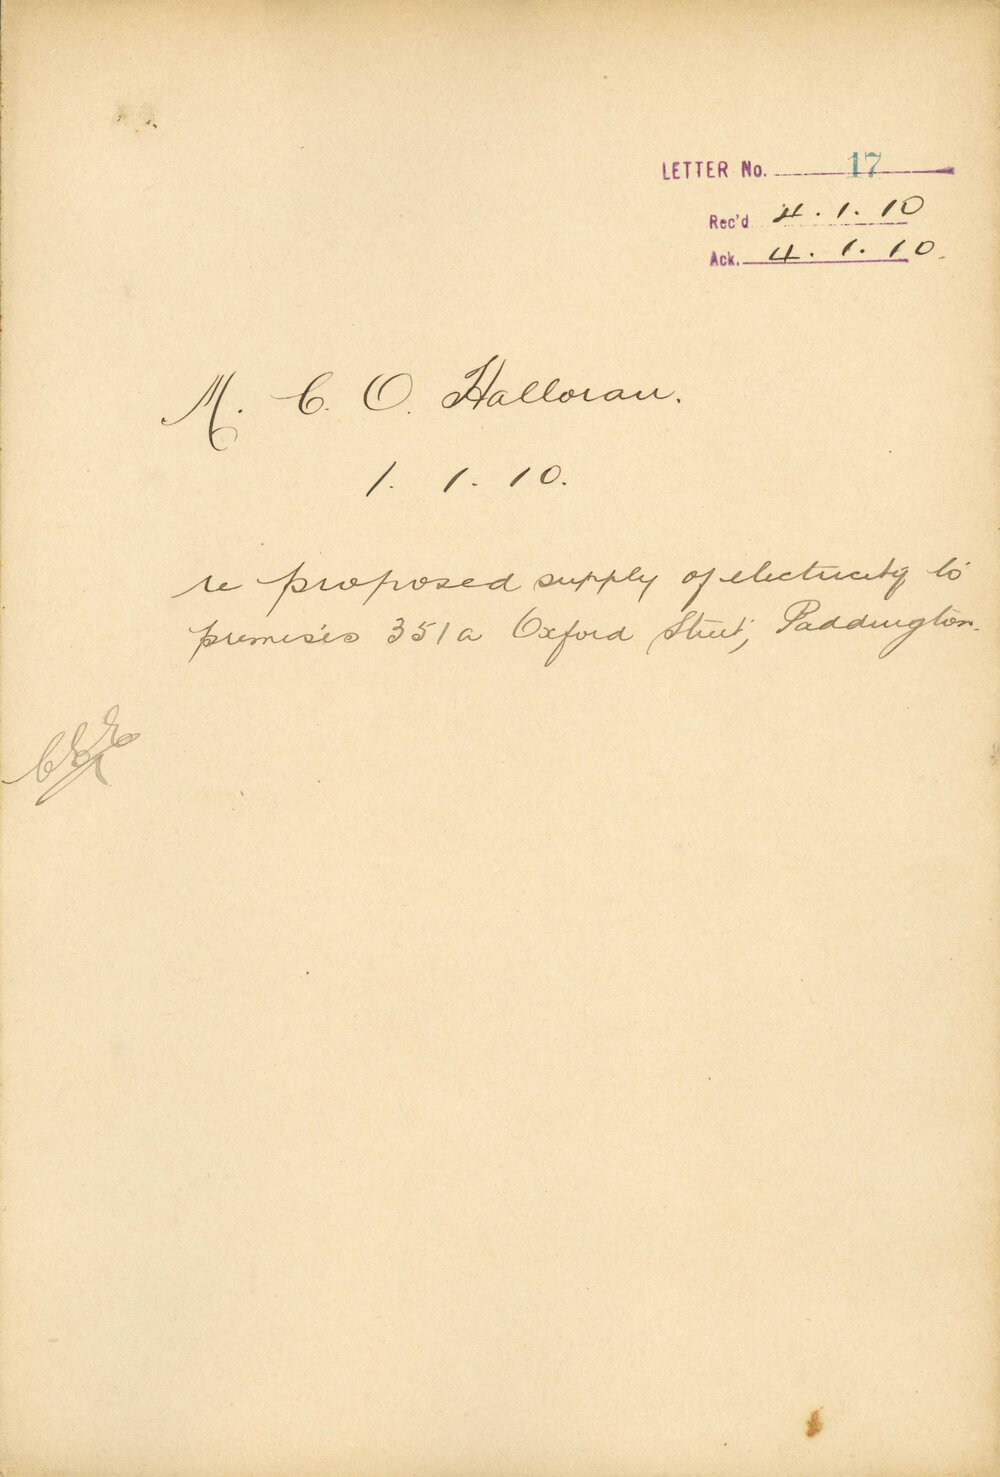 LETTER No. 17
Rec'd 4.1.10
Ack. 4.1.10.
M. C. O. Halloran.
1. 1. 10.
re proposed supply of electricity to
premises 351a Oxford Street, Paddington.